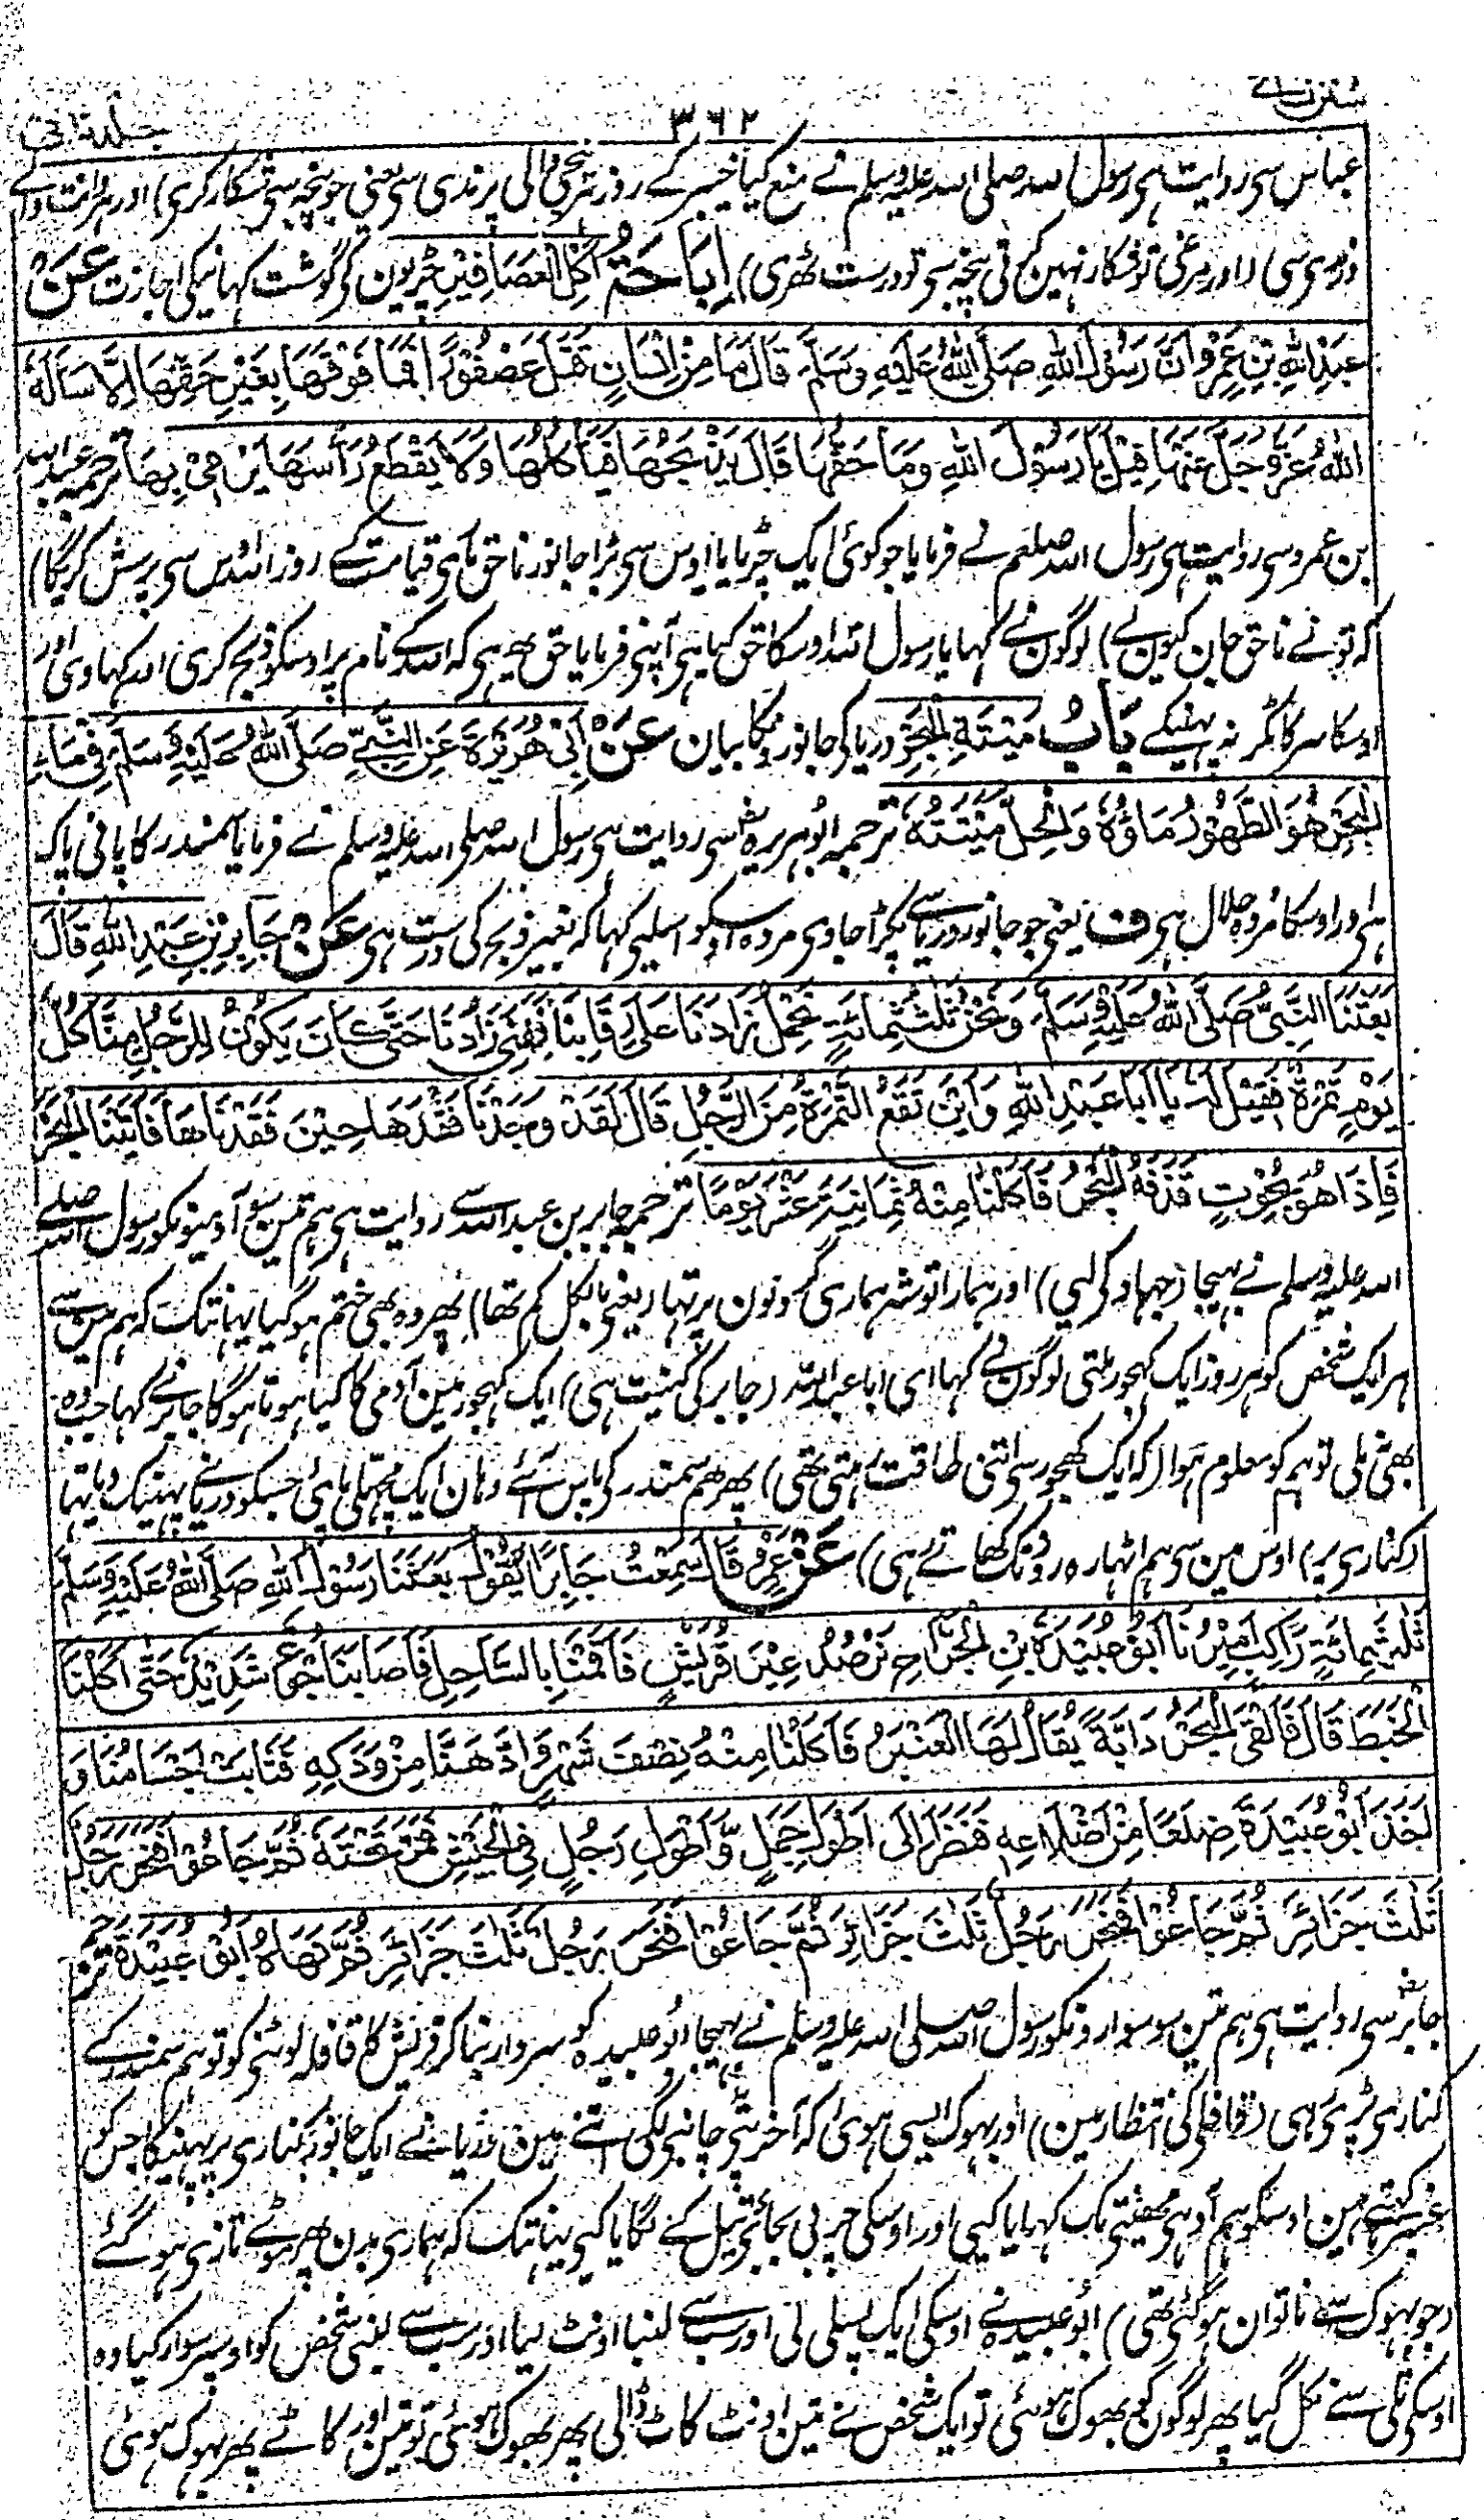 سنن نسائی
۳۶۲
جلد ثانی
عباس سی روایت ہی رسول اللہ صلی اللہ علیہ وسلم نے منع کیا خیبر کے روز پنجی والی پرندی سی یعنی جو پنجہ سی شکار کری) اور ہر دانت والے
درندی سی (اور مرغی تو شکار نہین کرتی پنجہ سی تو درست ٹھری) اِبَاحَةُ اَكْلِ الْعَصَافِيْرِ چڑیون کی گوشت کہانیکی اجازت عَنْ
عَبْدِ اللهِ بْنِ عَمْرٍو اَنَّ رَسُوْلَ اللهِ صَلَّى اللهُ عَلَيْهِ وَسَلَّمَ قَالَ مَا مِنْ اِنْسَانٍ قَتَلَ عُصْفُوْرًا فَمَا فَوْقَهَا بِغَيْرِ حَقِّهَا اِلَّا سَاَلَهُ
اللهُ عَزَّ وَجَلَّ عَنْهَا قِيْلَ يَا رَسُوْلَ اللهِ وَمَا حَقُّهَا قَالَ يَذْبَحُهَا فَيَاْكُلُهَا وَلَا يَقْطَعُ رَاْسَهَا يَرْمِيْ بِهَا ترجمہ عبداللہ
بن عمرو سی روایت ہی رسول اللہ صلعم نے فرمایا جو کوئی ایک چڑیا یا اوس سی بڑا جانور ناحق ماری قیامت کے روز اللہ اس سی پرسش کریگا)
کہ تو نے ناحق جان کیون لے) لوگون نے کہا یا رسول اللہ اوسکا حق کیا ہی آپنی فرمایا حق یہ ہی کہ اللہ کے نام پر اوسکو ذبح کری اور کہاوی اور
اوسکا سر کاٹکر نہ پہینکے بَابُ مَيْتَةِ الْبَحْرِ دریا کی جانورونکا بیان عَنْ اَبِيْ هُرَيْرَةَ عَنِ النَّبِيِّ صَلَّى اللهُ عَلَيْهِ وَسَلَّمَ فِيْ مَاءِ
الْبَحْرِ هُوَ الطَّهُوْرُ مَاؤُهُ وَالْحِلُّ مَيْتَتُهُ ترجمہ ابوہریرہؓ سی روایت ہی رسول اللہ صلی اللہ علیہ وسلم نے فرمایا سمندر کا پانی پاک
ہی اور اوسکا مردہ حلال ہی ف یعنی جو جانور دریا سے پکڑا جاوی مردہ اوسکو اسلیی کہا کہ بغیر ذبح کی درست ہی عَنْ جَابِرِ بْنِ عَبْدِ اللهِ قَالَ
بَعَثَنَا النَّبِيُّ صَلَّى اللهُ عَلَيْهِ وَسَلَّمَ وَنَحْنُ ثَلٰثُمِائَةٍ نَحْمِلُ زَادَنَا عَلٰى رِقَابِنَا فَفَنِيَ زَادُنَا حَتّٰى كَانَ يَكُوْنُ لِلرَّجُلِ مِنَّا كُلَّ
يَوْمٍ تَمْرَةٌ فَقِيْلَ لَهُ يَا اَبَا عَبْدِ اللهِ وَاَيْنَ تَقَعُ التَّمْرَةُ مِنَ الرَّجُلِ قَالَ لَقَدْ وَجَدْنَا فَقْدَهَا حِيْنَ فَقَدْنَاهَا فَاَتَيْنَا الْبَحْرَ
فَاِذَا هُوَ بِحُوْتٍ قَذَفَهُ الْبَحْرُ فَاَكَلْنَا مِنْهُ ثَمَانِيَةَ عَشَرَ يَوْمًا ترجمہ جابر بن عبداللہ سے روایت ہی ہم تین سو آدمیونکو رسول اللہ صلے
اللہ علیہ وسلم نے بہیجا (جہاد کی لیی) اور ہمارا توشہ ہماری گردنون پر تہا (یعنی بالکل کم تھا) پھر وہ بھی ختم ہوگیا یہانتک کہ ہم مین سے
ہر ایک شخص کو ہر روز ایک کہجور ملتی لوگون نے کہا ای ابا عبداللہ (جابر کی کنیت ہی) ایک کہجور مین آدمی کا کیا ہوتا ہوگا جابر نے کہا جب وہ
بھی نہ ملی تو ہم کو معلوم ہوا (کہ ایک کھجور سی اتنی طاقت رہتی تھی) پھر ہم سمندر کی پاس آئے وہان ایک مچہلی پائی جسکو دریا نے پہینک دیا تہا
(کناری پر) اوس مین سی ہم اٹہارہ روز تک کھاتے رہی) عَنْ عَمْرٍو قَالَ سَمِعْتُ جَابِرًا يَقُوْلُ بَعَثَنَا رَسُوْلُ اللهِ صَلَّى اللهُ عَلَيْهِ وَسَلَّمَ
ثَلٰثَمِائَةِ رَاكِبٍ اَمِيْرُنَا اَبُوْ عُبَيْدَةَ بْنُ الْجَرَّاحِ نَرْصُدُ عِيْرَ قُرَيْشٍ فَاَقَمْنَا بِالسَّاحِلِ فَاَصَابَنَا جُوْعٌ شَدِيْدٌ حَتّٰى اَكَلْنَا
الْخَبَطَ قَالَ فَاَلْقَى الْبَحْرُ دَابَّةً يُقَالُ لَهَا الْعَنْبَرُ فَاَكَلْنَا مِنْهُ نِصْفَ شَهْرٍ وَادَّهَنَّا مِنْ وَدَكِهٖ فَثَابَتْ اَجْسَامُنَا وَ
اَخَذَ اَبُوْ عُبَيْدَةَ ضِلَعًا مِنْ اَضْلَاعِهٖ فَنَظَرَ اِلٰى اَطْوَلِ جَمَلٍ وَّاَطْوَلِ رَجُلٍ فِي الْجَيْشِ فَمَرَّ تَحْتَهٗ ثُمَّ جَاعُوْا فَنَحَرَ رَجُلٌ
ثَلٰثَ جَزَائِرَ ثُمَّ جَاعُوْا فَنَحَرَ رَجُلٌ ثَلٰثَ جَزَائِرَ ثُمَّ جَاعُوْا فَنَحَرَ رَجُلٌ ثَلٰثَ جَزَائِرَ ثُمَّ نَهَاهُ اَبُوْ عُبَيْدَةَ ترجمہ
جابرؓ سی روایت ہی ہم تین سو سوارونکو رسول اللہ صلی اللہ علیہ وسلم نے بہیجا ابو عبیدہ کو سردار بنا کر قریش کا قافلہ لوٹنی کو تو ہم سمندر کے
کناری پڑی رہی (قافلی کی انتظار مین) اور بہوک ایسی ہوئی کہ آخر پتی چابنی لگی اتنے مین دریا نے ایک جانور کناری پر پہینکا جس کو
عنبر کہتے ہین اوسکو ہم آدہی مہینی تک کہایا کیی اور اوسکی چربی بجائی تیل کے لگایا کیی یہانتک کہ ہماری بدن پھر موٹے تازی ہوگئے
(جو بہوک سے ناتوان ہوگئی تھی) ابو عبیدہ نے اوسکی ایک پسلی لی اور سب سے لنبا اونٹ لیا اور سب سے لنبی شخص کو اوسپر سوار کیا وہ
اوسکی تلی سے نکل گیا پھر لوگون کو بھوک ہوئی تو ایک شخص نے تین اونٹ کاٹ ڈالی پھر بھوک ہوئی تو تین اور کاٹے پھر بہوک ہوئی